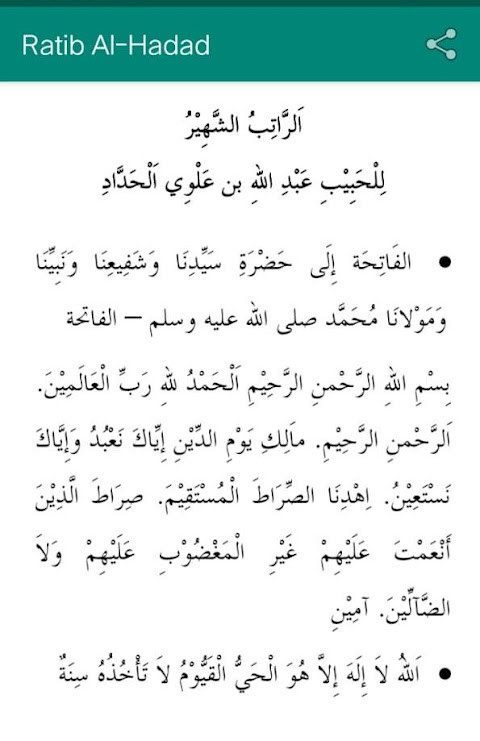 Ratib Al-Hadad
اَلرَّاتِبُ الشَّهِيْرُ
لِلْحَبِيْبِ عَبْدِ اللهِ بن عَلْوِي اَلْحَدَّادِ
● الفَاتِحَة إِلَى حَضْرَةِ سَيِّدِنَا وَشَفِيعِنَا وَنَبِيِّنَا
وَمَوْلانَا مُحَمَّد صلى الله عليه وسلم – الفاتحة
بِسْمِ اللهِ الرَّحْمنِ الرَّحِيْمِ اَلْحَمْدُ للهِ رَبِّ الْعَالَمِيْنَ.
اَلرَّحْمنِ الرَّحِيْمِ. ماَلِكِ يَوْمِ الدِّيْنِ إِيَّاكَ نَعْبُدُ وَإِيَّاكَ
نَسْتَعِيْنُ. اِهْدِنَا الصِّرَاطَ الْمُسْتَقِيْمَ. صِرَاطَ الَّذِيْنَ
أَنْعَمْتَ عَلَيْهِمْ غَيْرِ الْمَغْضُوْبِ عَلَيْهِمْ وَلاَ
الضَّآلِّيْنَ. آمِيْنِ
● اَللهُ لاَ إِلَهَ إِلاَّ هُوَ الْحَيُّ الْقَيُّوْمُ لاَ تَأْخُذُهُ سِنَةٌ